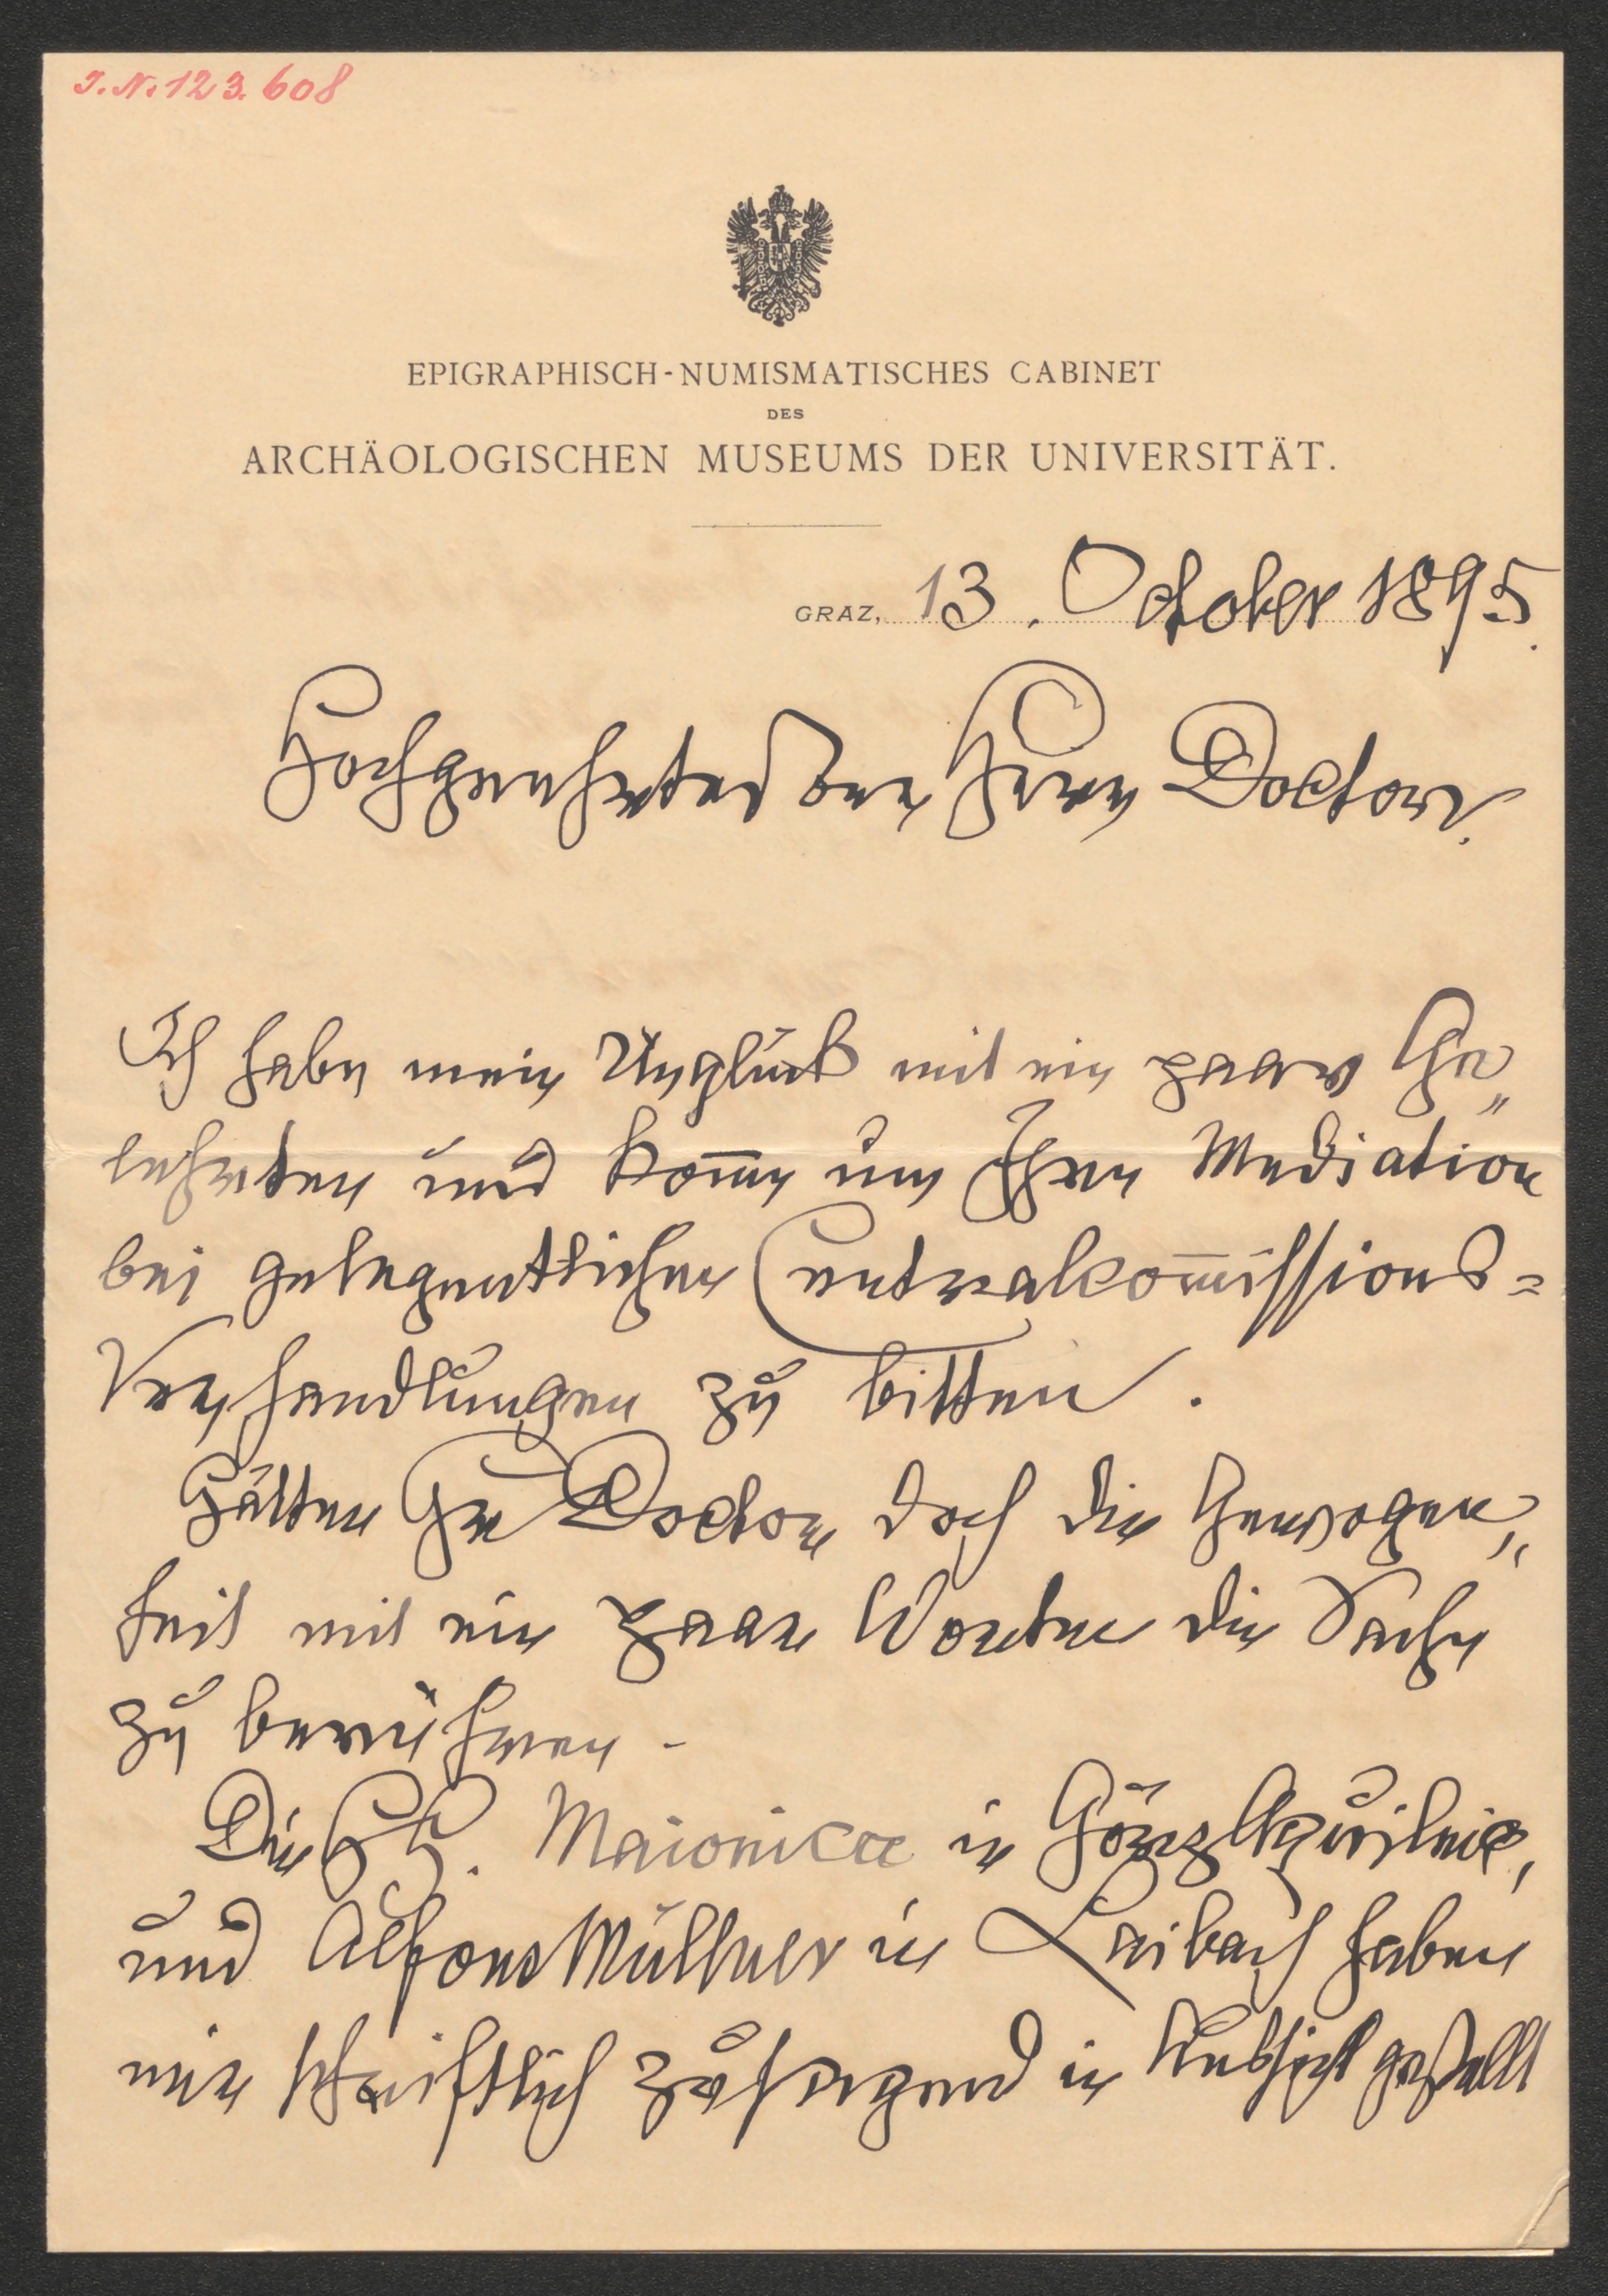 I. N. 123.608
EPIGRAPHISCH-NUMISMATISCHES CABINET
DES
ARCHÄOLOGISCHEN MUSEUMS DER UNIVERSITÄT.
GRAZ, 13. October 1895.
Hochgeehrtester Herr Doctor.
Ich habe mein Unglück mit ein paar Ge„
lehrten und kom̄e um Ihre Mediation
bei gelegentlichen Centralkom̄issions=
Verhandlungen zu bitten.
Hätten Hr Doctor doch die Gewogen„
heit mit ein paar Worten die Sache
zu berühren.
Die HH. Maionica in Görz/Aquileia,
und Alfons Müllner in Laibach haben
mir schriftlich zusagend in Aussicht gestellt